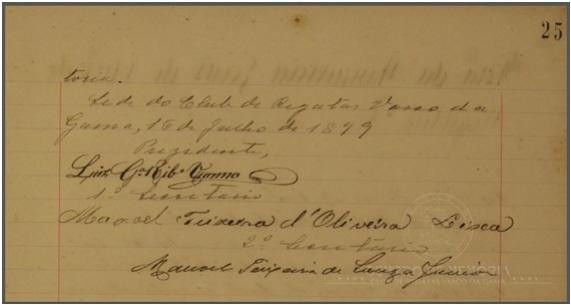 25
toria.
Sede do Club de Regatas Vasco da
Gama, 16 de Julho de 1899
Presidente,
Luiz Gº Ribº Vianna
1º Secretario
Manoel Teixeira d'Oliveira Lisca
2º Secretario
Manoel Teixeira de Souza Junior
VASCO DA GAMA